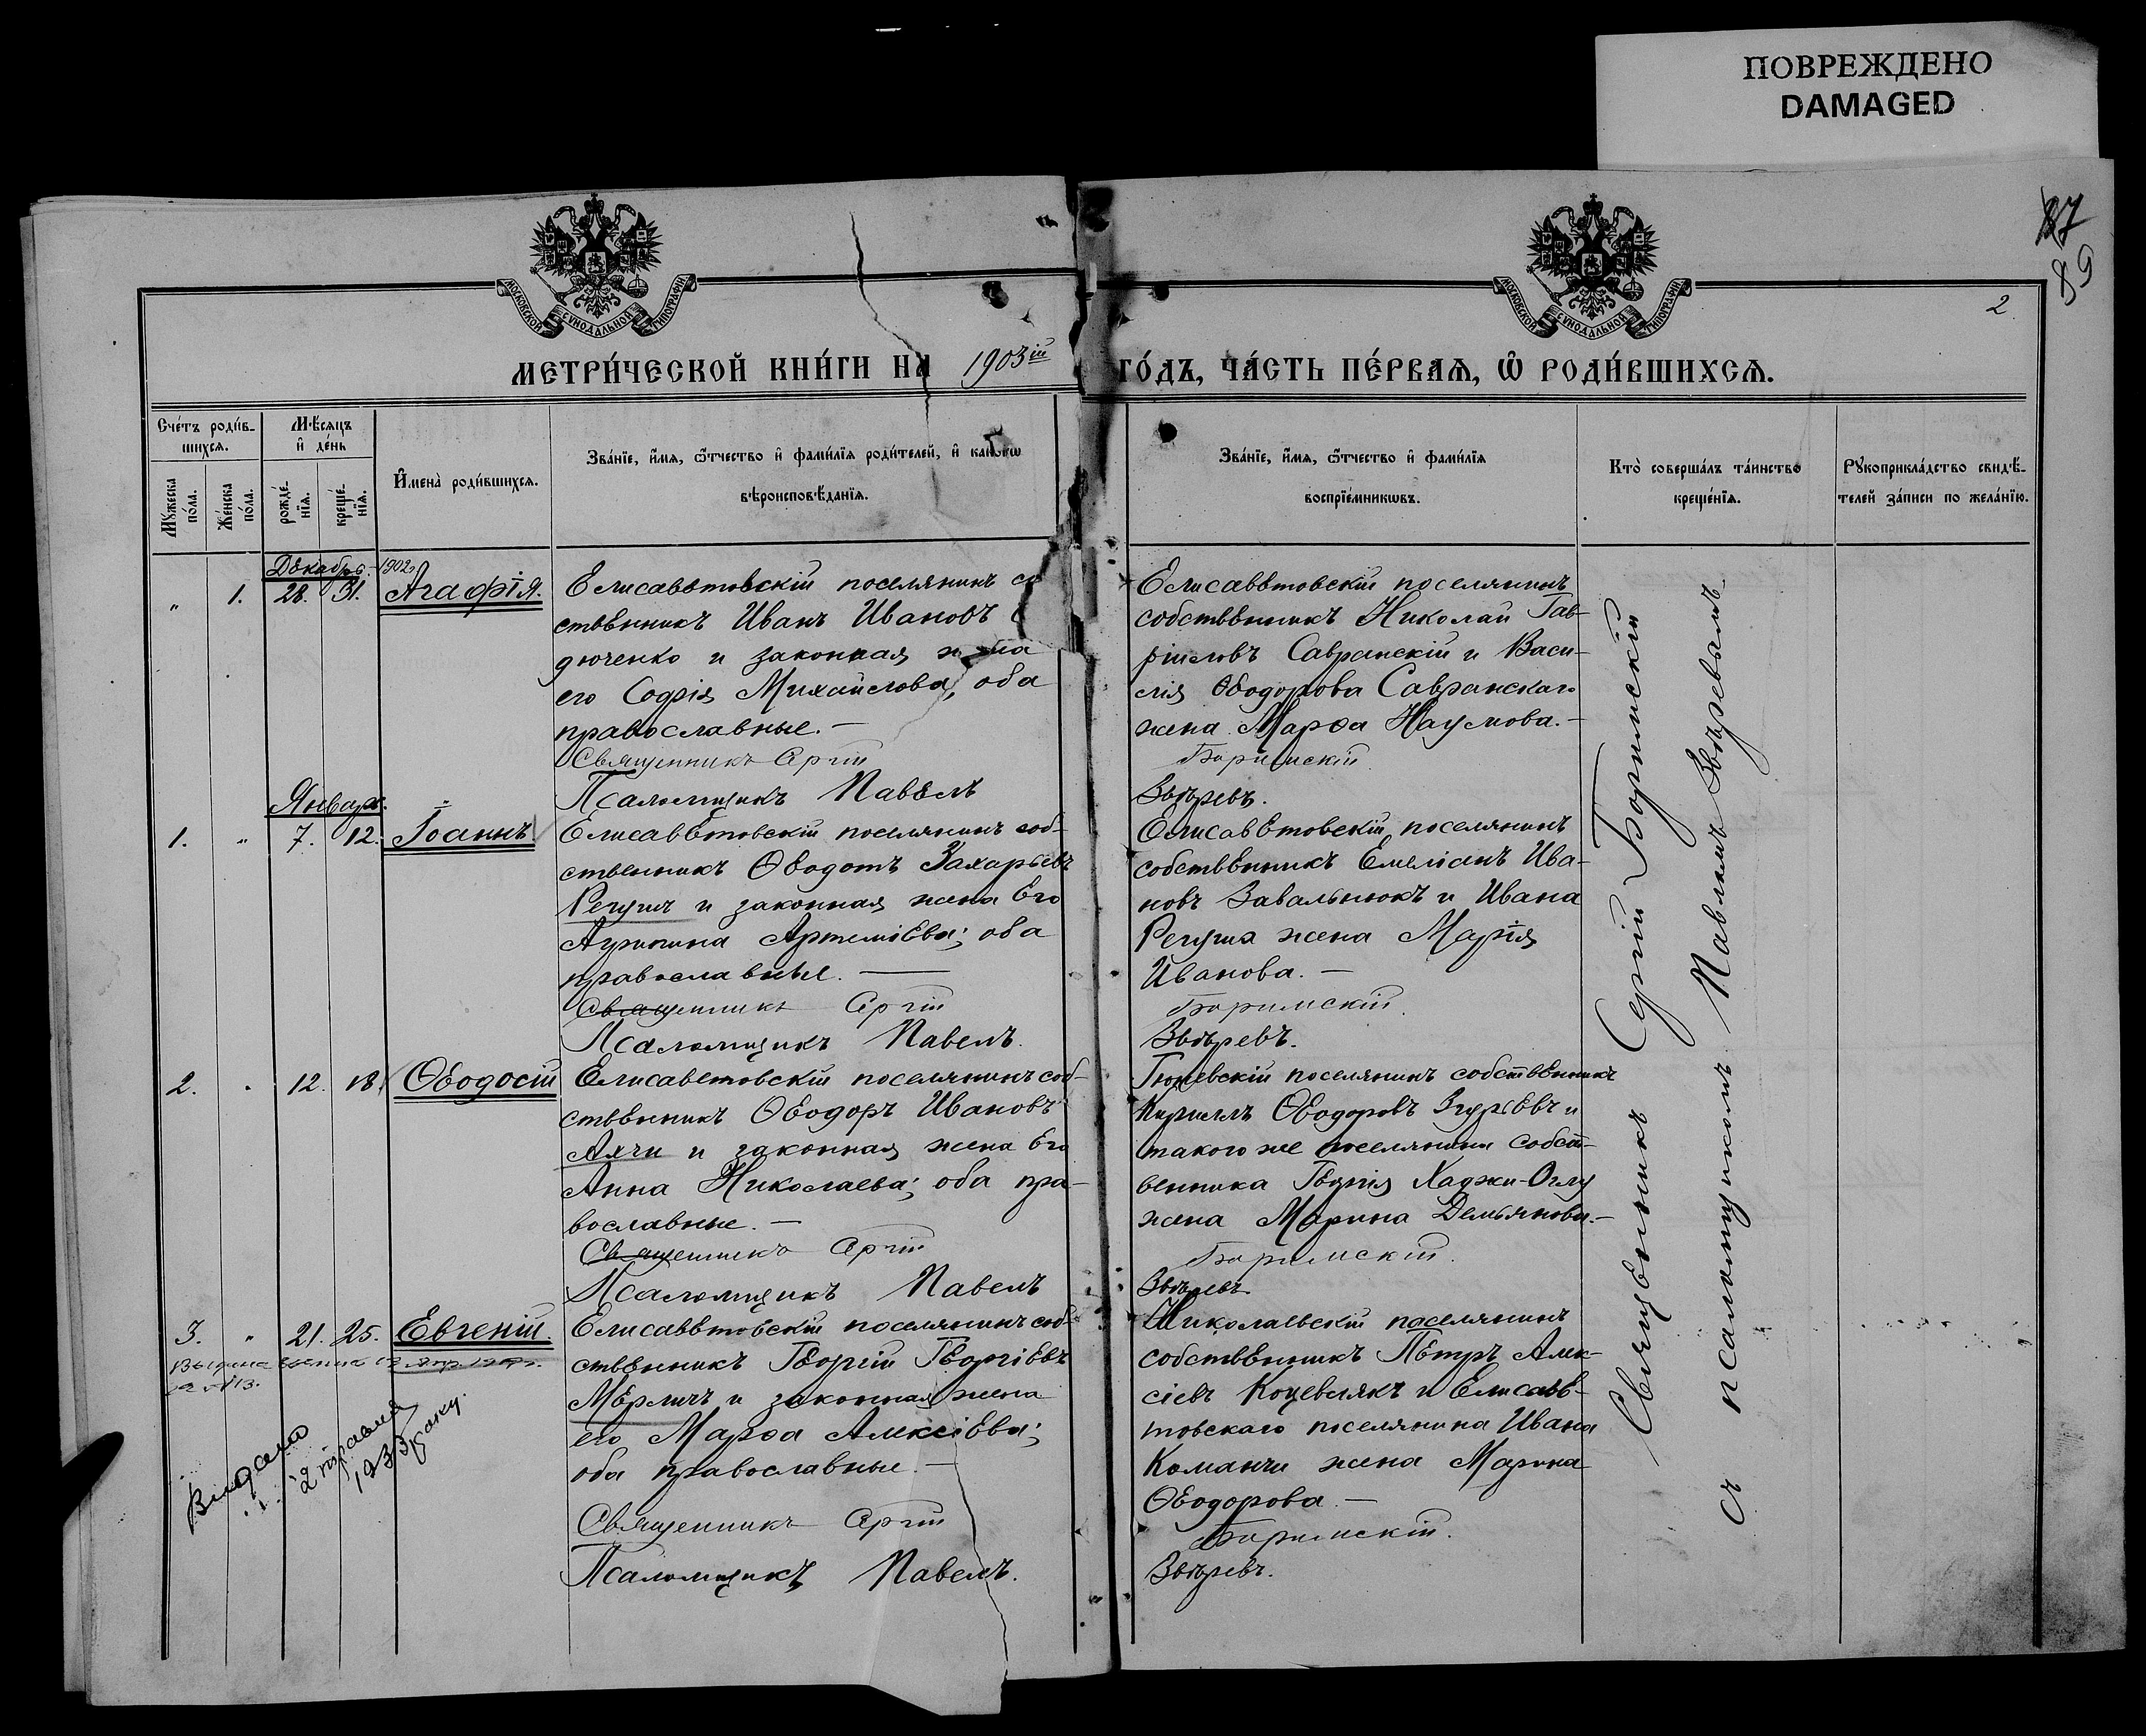 ПОВРЕЖДЕНО
DAMAGED
89
2
МОСКОВСКОЙ СѴНОДАЛЬНОЙ ТИПОГРАФІИ
МОСКОВСКОЙ СѴНОДАЛЬНОЙ ТИПОГРАФІИ
МЕТРИ́ЧЕСКОЙ КНИ́ГИ НА 1903ій ГО́ДЪ, ЧА́СТЬ ПЕ́РВАѦ, Ѡ РОДИ́ВШИХСѦ.
Сче́тъ роди́в-
шихся.
Мѣ́сяцъ
и҆ де́нь
Мꙋ́жеска по́ла.
Же́нска по́ла.
рожде́-
нїя.
креще́-
нїя.
И҆мена̀ роди́вшихся.
Зва́нїе, и҆́мя, ѻ҆́тчество и҆ фами́лїя роди́телей, и҆ како́гѡ
вѣроисповѣ́данїя.
Зва́нїе, и҆́мя, ѻ҆́тчество и҆ фами́лїя
воспрїе́мникѡвъ.
Кто̀ соверша́лъ та́инство
креще́нїя.
Рꙋкоприкла́дство свидѣ́-
телей за́писи по жела́нїю.
Декабрь 1902
" 1. 28. 31. Агафія.
Елисаветовскій поселянинъ со
ственникъ Иванъ Ивановъ
дюченко и законная жена
его Софія Михайлова, оба
православные. —
Священникъ Сергій
Псаломщикъ Павелъ
Елисаветовскій поселянинъ
собственникъ Николай Гав-
ріиловъ Савранскій и Васи-
лія Ѳеодорова Савранскаго
жена Марѳа Наумова. —
Боримскій
Звѣревъ.
Январь.
1. " 7. 12. Іоаннъ
Елисаветовскій поселянинъ соб-
ственникъ Ѳеодотъ Захарьевъ
и законная жена Его
Агрипина Артеміева; оба
православные. —
Священникъ Сергій
Псаломщикъ Павелъ.
Елисаветовскій поселянинъ
собственникъ Емеліанъ Ива-
новъ Завальнюкъ и Ивана
жена Марія
Иванова. —
Боримскій.
Звѣревъ.
2. " 12. 18. Ѳеодосій
Елисаветовскій поселянинъ соб-
ственникъ Ѳеодоръ Ивановъ
и законная жена Его
Анна Николаева; оба пра-
вославные. —
Священникъ Сергій
Псаломщикъ Павелъ
поселянинъ собственникъ
Кириллъ Ѳеодоровъ Згурьевъ и
такого же поселянина собст-
венника Георгія Хаджи-Оглу
жена Марина Демьянова. —
Боримскій.
Звѣревъ.
3. " 21. 25. Евгеній.
Елисаветовскій поселянинъ соб-
ственникъ Георгій Георгіевъ
Мерличъ и законная жена
его Марѳа Алексіева;
оба православные. —
Священникъ Сергій
Псаломщикъ Павелъ.
Николаевскій поселянинъ
собственникъ Петръ Алек-
сіевъ и Елисаве-
товскаго поселянина Ивана
Команчи жена Марина
Ѳеодорова. —
Боримскій.
Звѣревъ.
1933 року.
Священникъ Сергій Боримскій
съ псаломщикомъ Павломъ Звѣревымъ